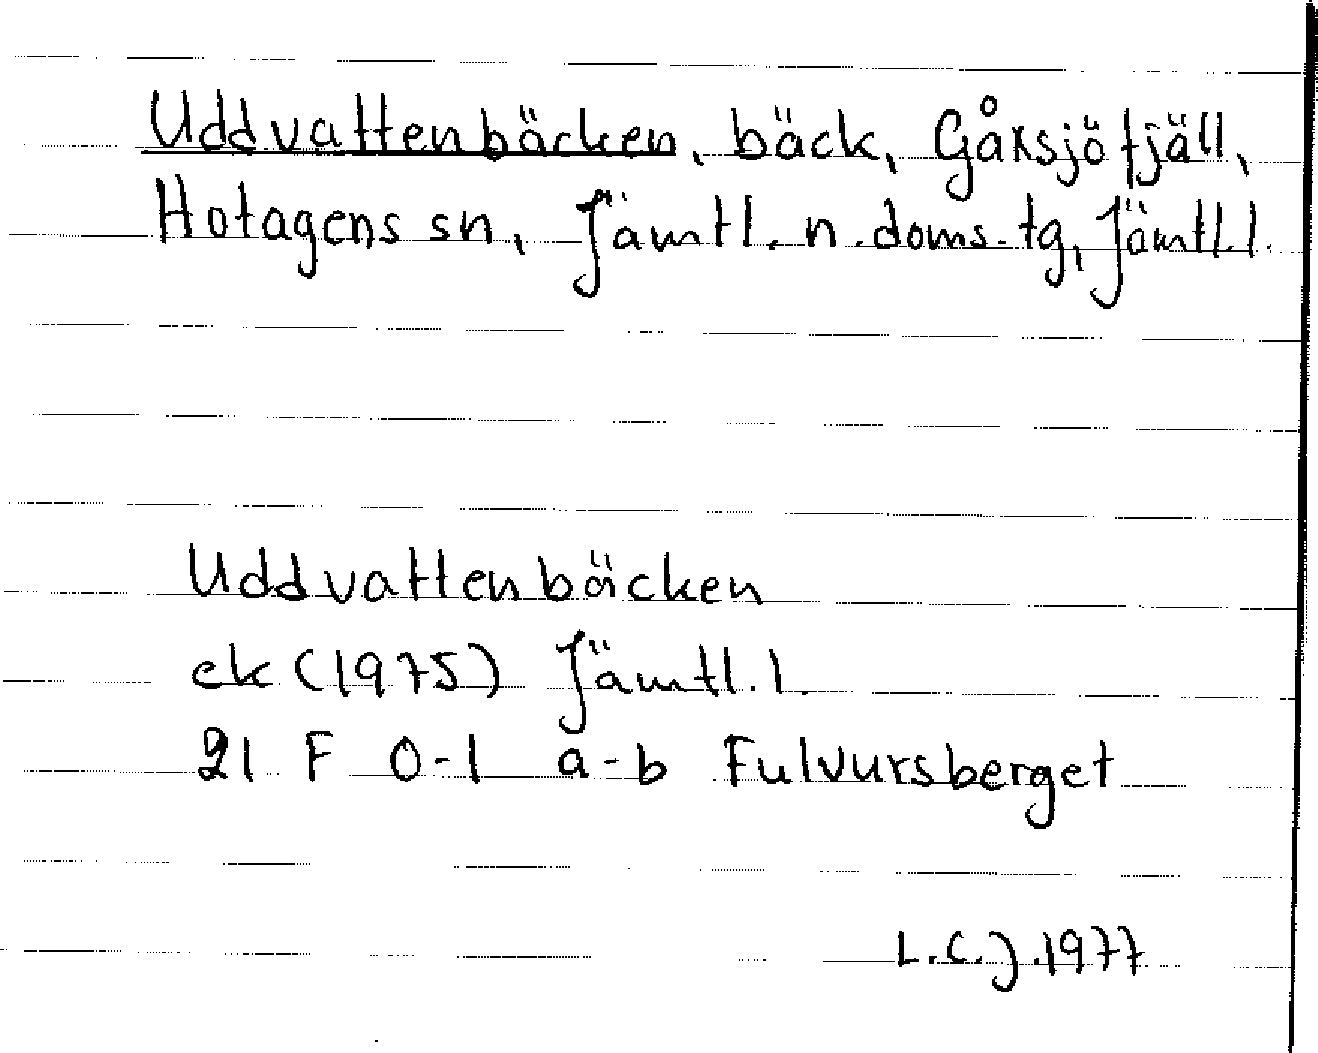 Uddvattenbäcken, bäck, Gåxsjöfjäll,
Hotagens sn, Jämtl. n. doms. tg, Jämtl. l.
Uddvattenbäcken
ek (1975) Jämtl. l.
21 F 0-1 a-b Fulvursberget
L.C.J. 1977